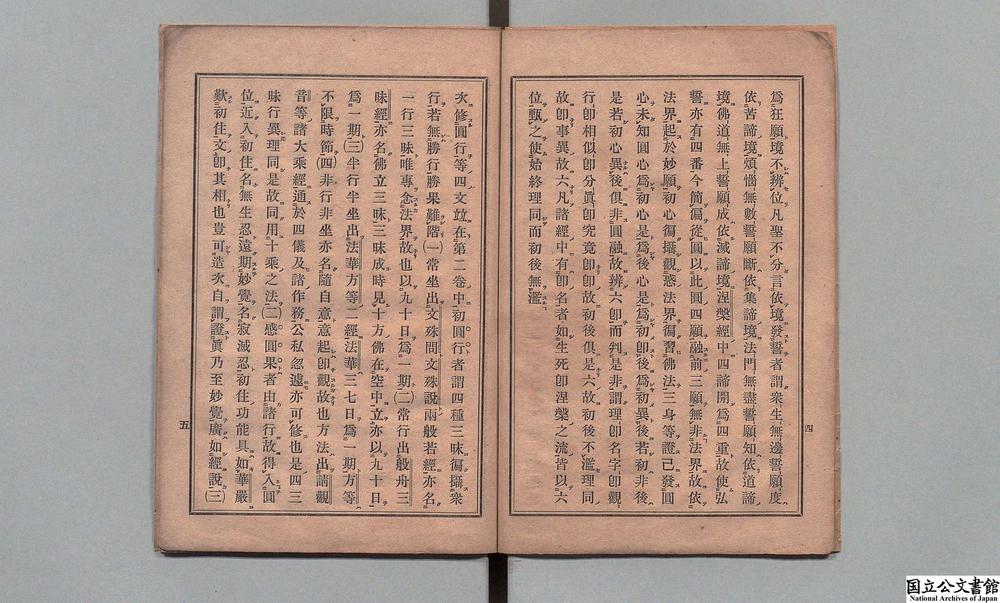 爲狂願境不辨位凡聖不分言依境發誓者謂衆生無邊誓願度
依苦諦境煩惱無數誓願斷依集諦境法門無盡誓願知依道諦
境佛道無上誓願成依滅諦境涅槃經中四諦開爲四重故使弘
誓亦有四番今簡偏從圓以此圓四願融前三願無非法界故依
法界起於妙願初心徧攝觀惑法界徧習佛法三身等證已發圓
心未知圓心爲初心是爲後心是爲初卽初異後若初非後
是若初心異後俱非圓融故辨六卽而判是非謂理卽名字卽觀
行卽相似卽分眞卽究竟卽卽故初後俱是六故初後不濫理同
故卽事異故六凡諸經中有卽名者如生死卽涅槃之流皆以六
位甄之使始終理同而初後無濫
四
次修圓行等四文竝在第二卷中初圓行者謂四種三昧徧攝衆
行若無勝行勝果難階(一)常坐出文殊問文殊說兩般若經亦名
一行三昧唯專念法界故也以九十日爲一期(二)常行出般舟三
昧經亦名佛立三昧三昧成時見十方佛在空中立亦以九十日
爲一期(三)半行半坐出法華方等二經法華三七日爲一期方等
不限時節(四)非行非坐亦名隨自意意起卽觀故也方法出請觀
音等諸大乘經通於四儀及諸作務公私忽遽亦可修也是四三
昧行異理同是故同用十乘之法(二)感圓果者由諸行故得入圓
位近入初住名無生忍遠期妙覺名寂滅忍初住功能具如華嚴
歎初住文卽其相也豈可造次自謂證眞乃至妙覺廣如經說(三)
五
国立公文書館
National Archives of Japan